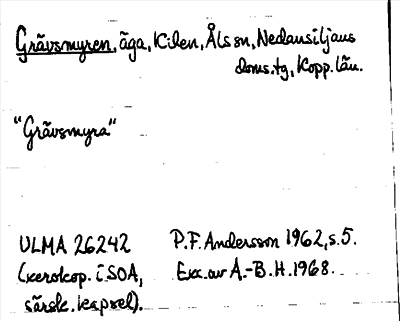 Grävsmyren, äga, Kilen, Åls sn, Nedansiljans
doms.tg, Kopp. län.
"Grävsmyra"
ULMA 26242 P.F. Andersson 1962, s. 5.
(xerokop. i SOA, Exc. av A.-B. H. 1968.
särsk. kapsel).